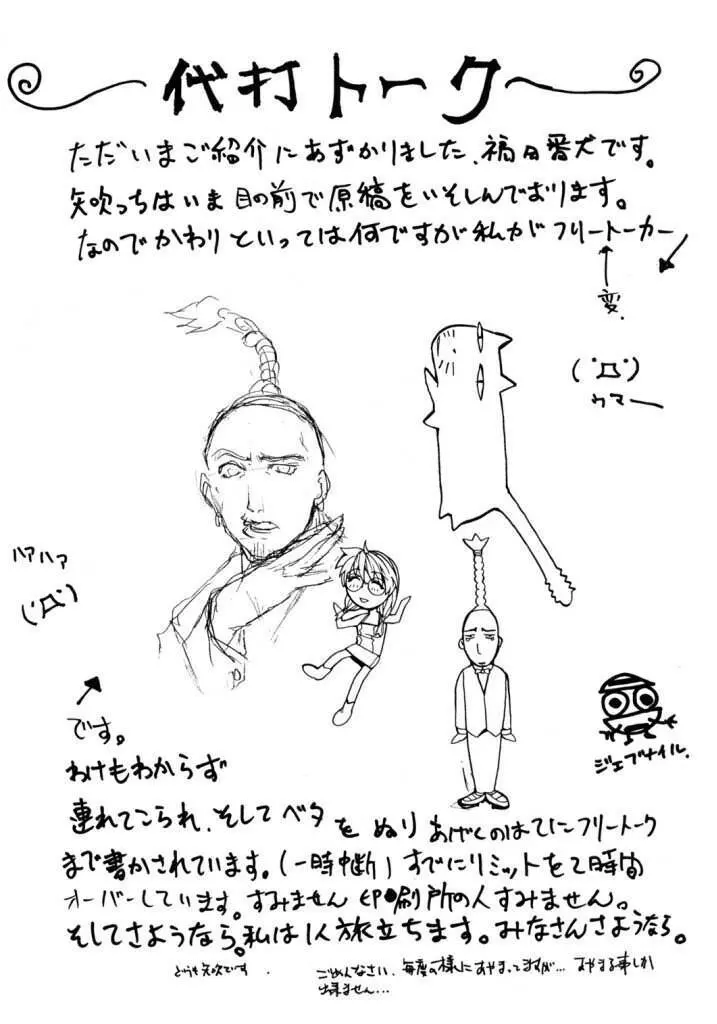 代打トーク
ただいまご紹介にあずかりました、福日番犬です。
矢吹っちはいま目の前で原稿をいそしんでおります。
なのでかわりといっては何ですが私がフリートーカー
変。
(゚Д゚)
ウマー
ハァハァ
(゚Д゚)
です。
ジェブナイル。
わけもわからず
連れてこられ、そしてベタをぬりあげくのはてにフリートーク
まで書かされています。(一時中断)すでにリミットを2時間
オーバーしています。すみません印刷所の人すみません。
そしてさようなら。私は1人旅立ちます。みなさんさようなら。
どうも矢吹です。
ごめんなさい、毎度の様にあやまってますが…あやまる事しか
出来ません…